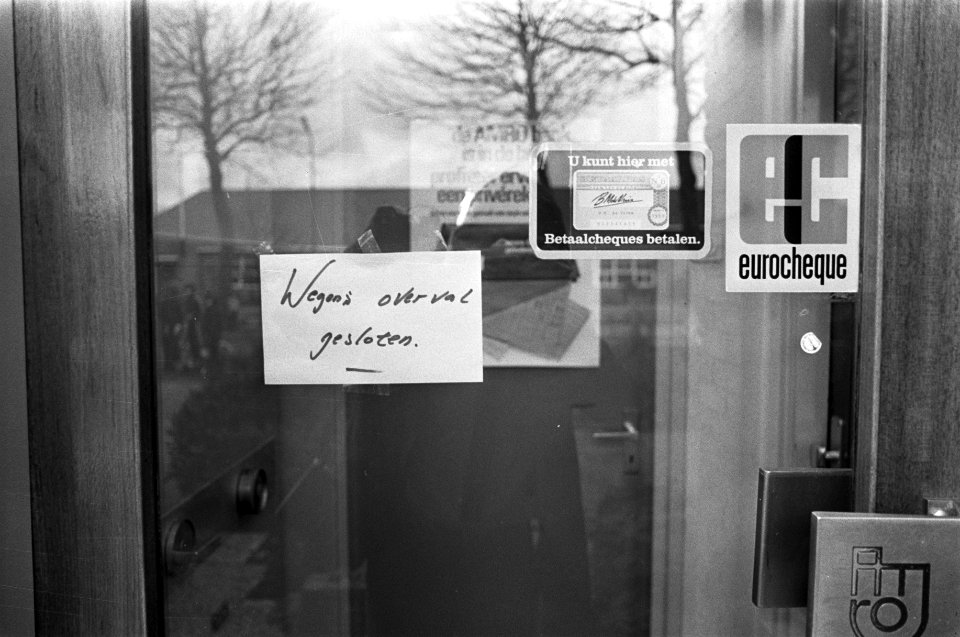 de AMRO
U kunt hier met
Betaalcheques betalen.
ec
eurocheque
Wegens overval
gesloten.